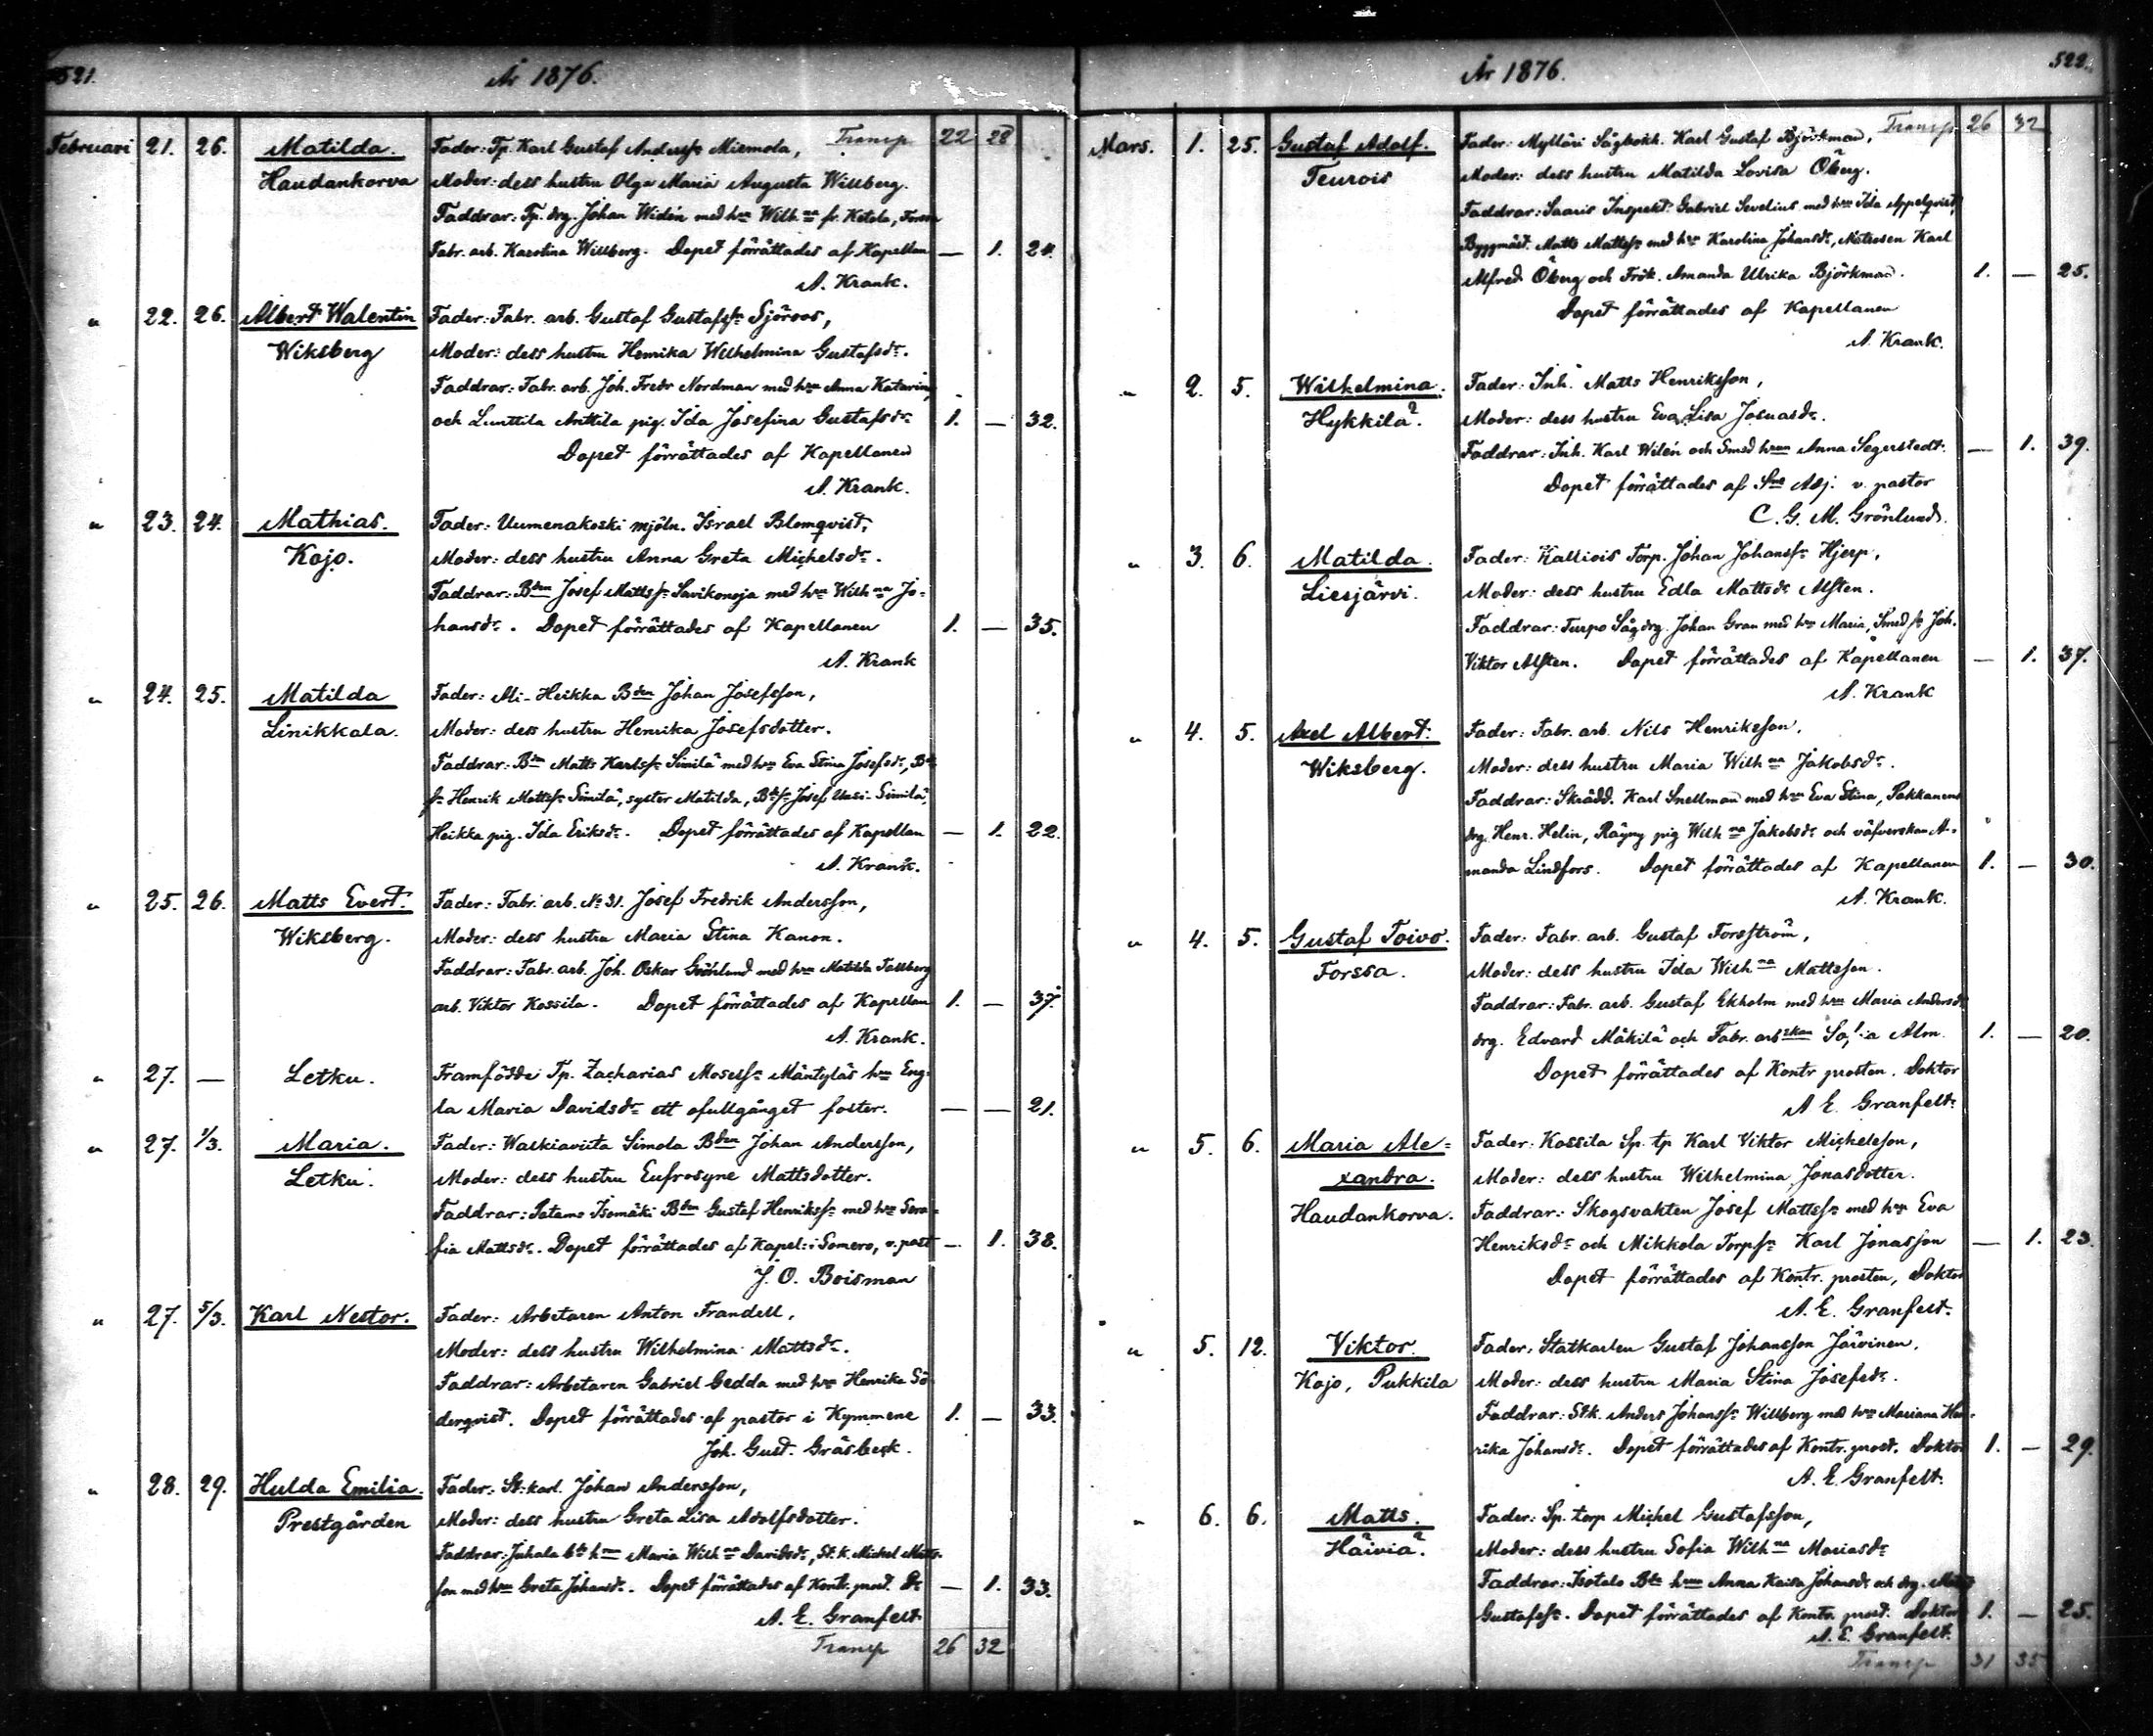 521.
År 1876.
Februari 21. 26. Matilda. Fader: Tp. Karl Gustaf Anderss: Miemola, Transp 22 28
Haudankorva Moder: dess hustru Olga Maria Augusta Willberg.
Faddrar: Tp. drg. Johan Widén med hru Wilhna fr. Ketola, Forssa
Fabr. arb. Karolina Willberg. Dopet förrättades af Kapellan — 1. 24.
A. Krank.
" 22. 26. Albert Walentin Fader: Fabr. arb. Gustaf Gustafss: Sjöroos,
Wiksberg Moder: dess hustru Henrika Wilhelmina Gustafsdr.
Faddrar: Fabr. arb. Joh. Fredr Nordman med hru Anna Katarina,
och Lunttila Anttila pig. Ida Josefina Gustafsdr 1. — 32.
Dopet förrättades af Kapellanen
A. Krank.
" 23. 24. Mathias. Fader: Uumenakoski mjöln. Israel Blomqvist,
Kojo. Moder: dess hustru Anna Greta Michelsdr.
Faddrar: Bden Josef Mattss: Savikonoja med hru Wilhna Jo-
hansdr. Dopet förrättades af Kapellanen 1. — 35.
A. Krank
" 24. 25. Matilda Fader: Ali-Heikka Bden Johan Josefsson,
Linikkala. Moder: dess hustru Henrika Josefsdotter.
Faddrar: Bdn Matts Karlss: Similä med hru Eva Stina Josefsdr, Bd
sr Henrik Mattss: Similä, syster Matilda, Bdsr Josef Uusi-Similä,
Heikka pig. Ida Eriksdr. Dopet förrättades af Kapellan — 1. 22.
A. Krank.
" 25. 26. Matts Evert. Fader: Fabr. arb. No 31. Josef Fredrik Andersson,
Wiksberg. Moder: dess hustru Maria Stina Kanon.
Faddrar: Fabr. arb. Joh. Oskar Grönlund med hru Matilda Tallberg
arb. Viktor Kossila. Dopet förrättades af Kapellan 1. — 37.
A. Krank.
" 27. — Letku. Framfödde Tp. Zacharias Mosess: Mäntyläs hru Eng-
la Maria Davidsdr ett ofullgånget foster. — — 21.
" 27. 1/3. Maria. Fader: Waskiaviita Simola Bden Johan Andersson,
Letku. Moder: dess hustru Eufrosyne Mattsdotter.
Faddrar: Satamo Isomäki Bden Gustaf Henrikss: med hru Sera-
fia Mattsdr. Dopet förrättades af Kapel: i Somero, v. past — 1. 38.
J. O. Boisman
" 27. 5/3. Karl Nestor. Fader: Arbetaren Anton Frandell,
Moder: dess hustru Wilhelmina Mattsdr.
Faddrar: Arbetaren Gabriel Gedda med hru Henrika Sö-
derqvist. Dopet förrättades af pastor i Kymmene 1. — 33.
Joh. Gust. Gråsbeck.
" 28. 29. Hulda Emilia. Fader: St:karl. Johan Andersson,
Prestgården Moder: dess hustru Greta Lisa Adolfsdotter.
Faddrar: Juhala bds hru Maria Wilhna Davidsdr, St. k. Michel Matts-
son med hru Greta Johansdr. Dopet förrättades af Kontr. prost. Dr — 1. 33.
A. E. Granfelt
Transp 26 32
522.
År 1876.
Mars. 1. 25. Gustaf Adolf. Fader: Mylläri Sågbokh. Karl Gustaf Björkman, Transp 26 32
Teurois Moder: dess hustru Matilda Lovisa Öberg.
Faddrar: Saaris Inspekt: Gabriel Sevelius med hru Ida Appelqvist,
Byggmäst. Matts Mattss: med hru Karolina Johansdr, Matrosen Karl
Alfred Öberg och Frök. Amanda Ulrika Björkman. 1. — 25.
Dopet förrättades af Kapellanen
A. Krank.
" 2. 5. Wilhelmina. Fader: Inh. Matts Henriksson,
Hykkilä. Moder: dess hustru Eva Lisa Josuasdr.
Faddrar: Inh. Karl Wilén och Smed hrun Anna Segerstedt. — 1. 39.
Dopet förrättades af Sne Adj. v. pastor
C. G. M. Grönlund.
" 3. 6. Matilda. Fader: Kalliois Torp. Johan Johanss: Hjerp,
Liesjärvi. Moder: dess hustru Edla Mattsdr Alsten.
Faddrar: Turpo Sågdrg. Johan Gran med hru Maria, Smed sr Joh.
Viktor Alsten. Dopet förrättades af Kapellanen — 1. 37.
A. Krank
" 4. 5. Axel Albert. Fader: Fabr. arb. Nils Henriksson,
Wiksberg. Moder: dess hustru Maria Wilhna Jakobsdr.
Faddrar: Skrädd. Karl Snellman med hru Eva Stina, Pakkanens
drg. Henr. Helin, Räyny pig Wilhna Jakobsdr och väfverskan A-
manda Lindfors. Dopet förrättades af Kapellanen 1. — 30.
A. Krank.
" 4. 5. Gustaf Toivo. Fader: Fabr. arb. Gustaf Forsström,
Forssa. Moder: dess hustru Ida Wilhna Mattsson.
Faddrar: Fabr. arb. Gustaf Ekholm med hru Maria Andersdr
drg. Edvard Mäkilä och Fabr. arbskan Sofia Alm. 1. — 20.
Dopet förrättades af Kontr prosten. Doktor
A E. Granfelt.
" 5. 6. Maria Ale- Fader: Kossila Sp. tp Karl Viktor Michelsson,
xandra. Moder: dess hustru Wilhelmina Jonasdotter.
Haudankorva. Faddrar: Skogsvakten Josef Mattss: med hru Eva
Henriksdr och Mikkola Torpsr Karl Jonasson — 1. 23.
Dopet förrättades af Kontr. prosten, Doktor
A. E. Granfelt.
" 5. 12. Viktor. Fader: Statkarlen Gustaf Johansson Järvinen,
Kojo, Pukkila Moder: dess hustru Maria Stina Josefsdr.
Faddrar: St.k. Anders Johanss: Willberg med hru Mariana Hen-
rika Johansdr. Dopet förrättades af Kontr. prost. Doktor 1. — 29.
A. E. Granfelt.
" 6. 6. Matts. Fader: Sp. torp Michel Gustafsson,
Häiviä. Moder: dess hustru Sofia Wilhna Mariasdr
Faddrar: Isotalo Bds hru Anna Kaisa Johansdr och drg. Matts
Gustafss:. Dopet förrättades af Kontr. prost. Doktor 1. — 25.
A. E. Granfelt.
Transp 31 35